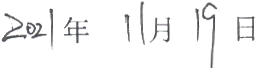 2021年 11月 19日